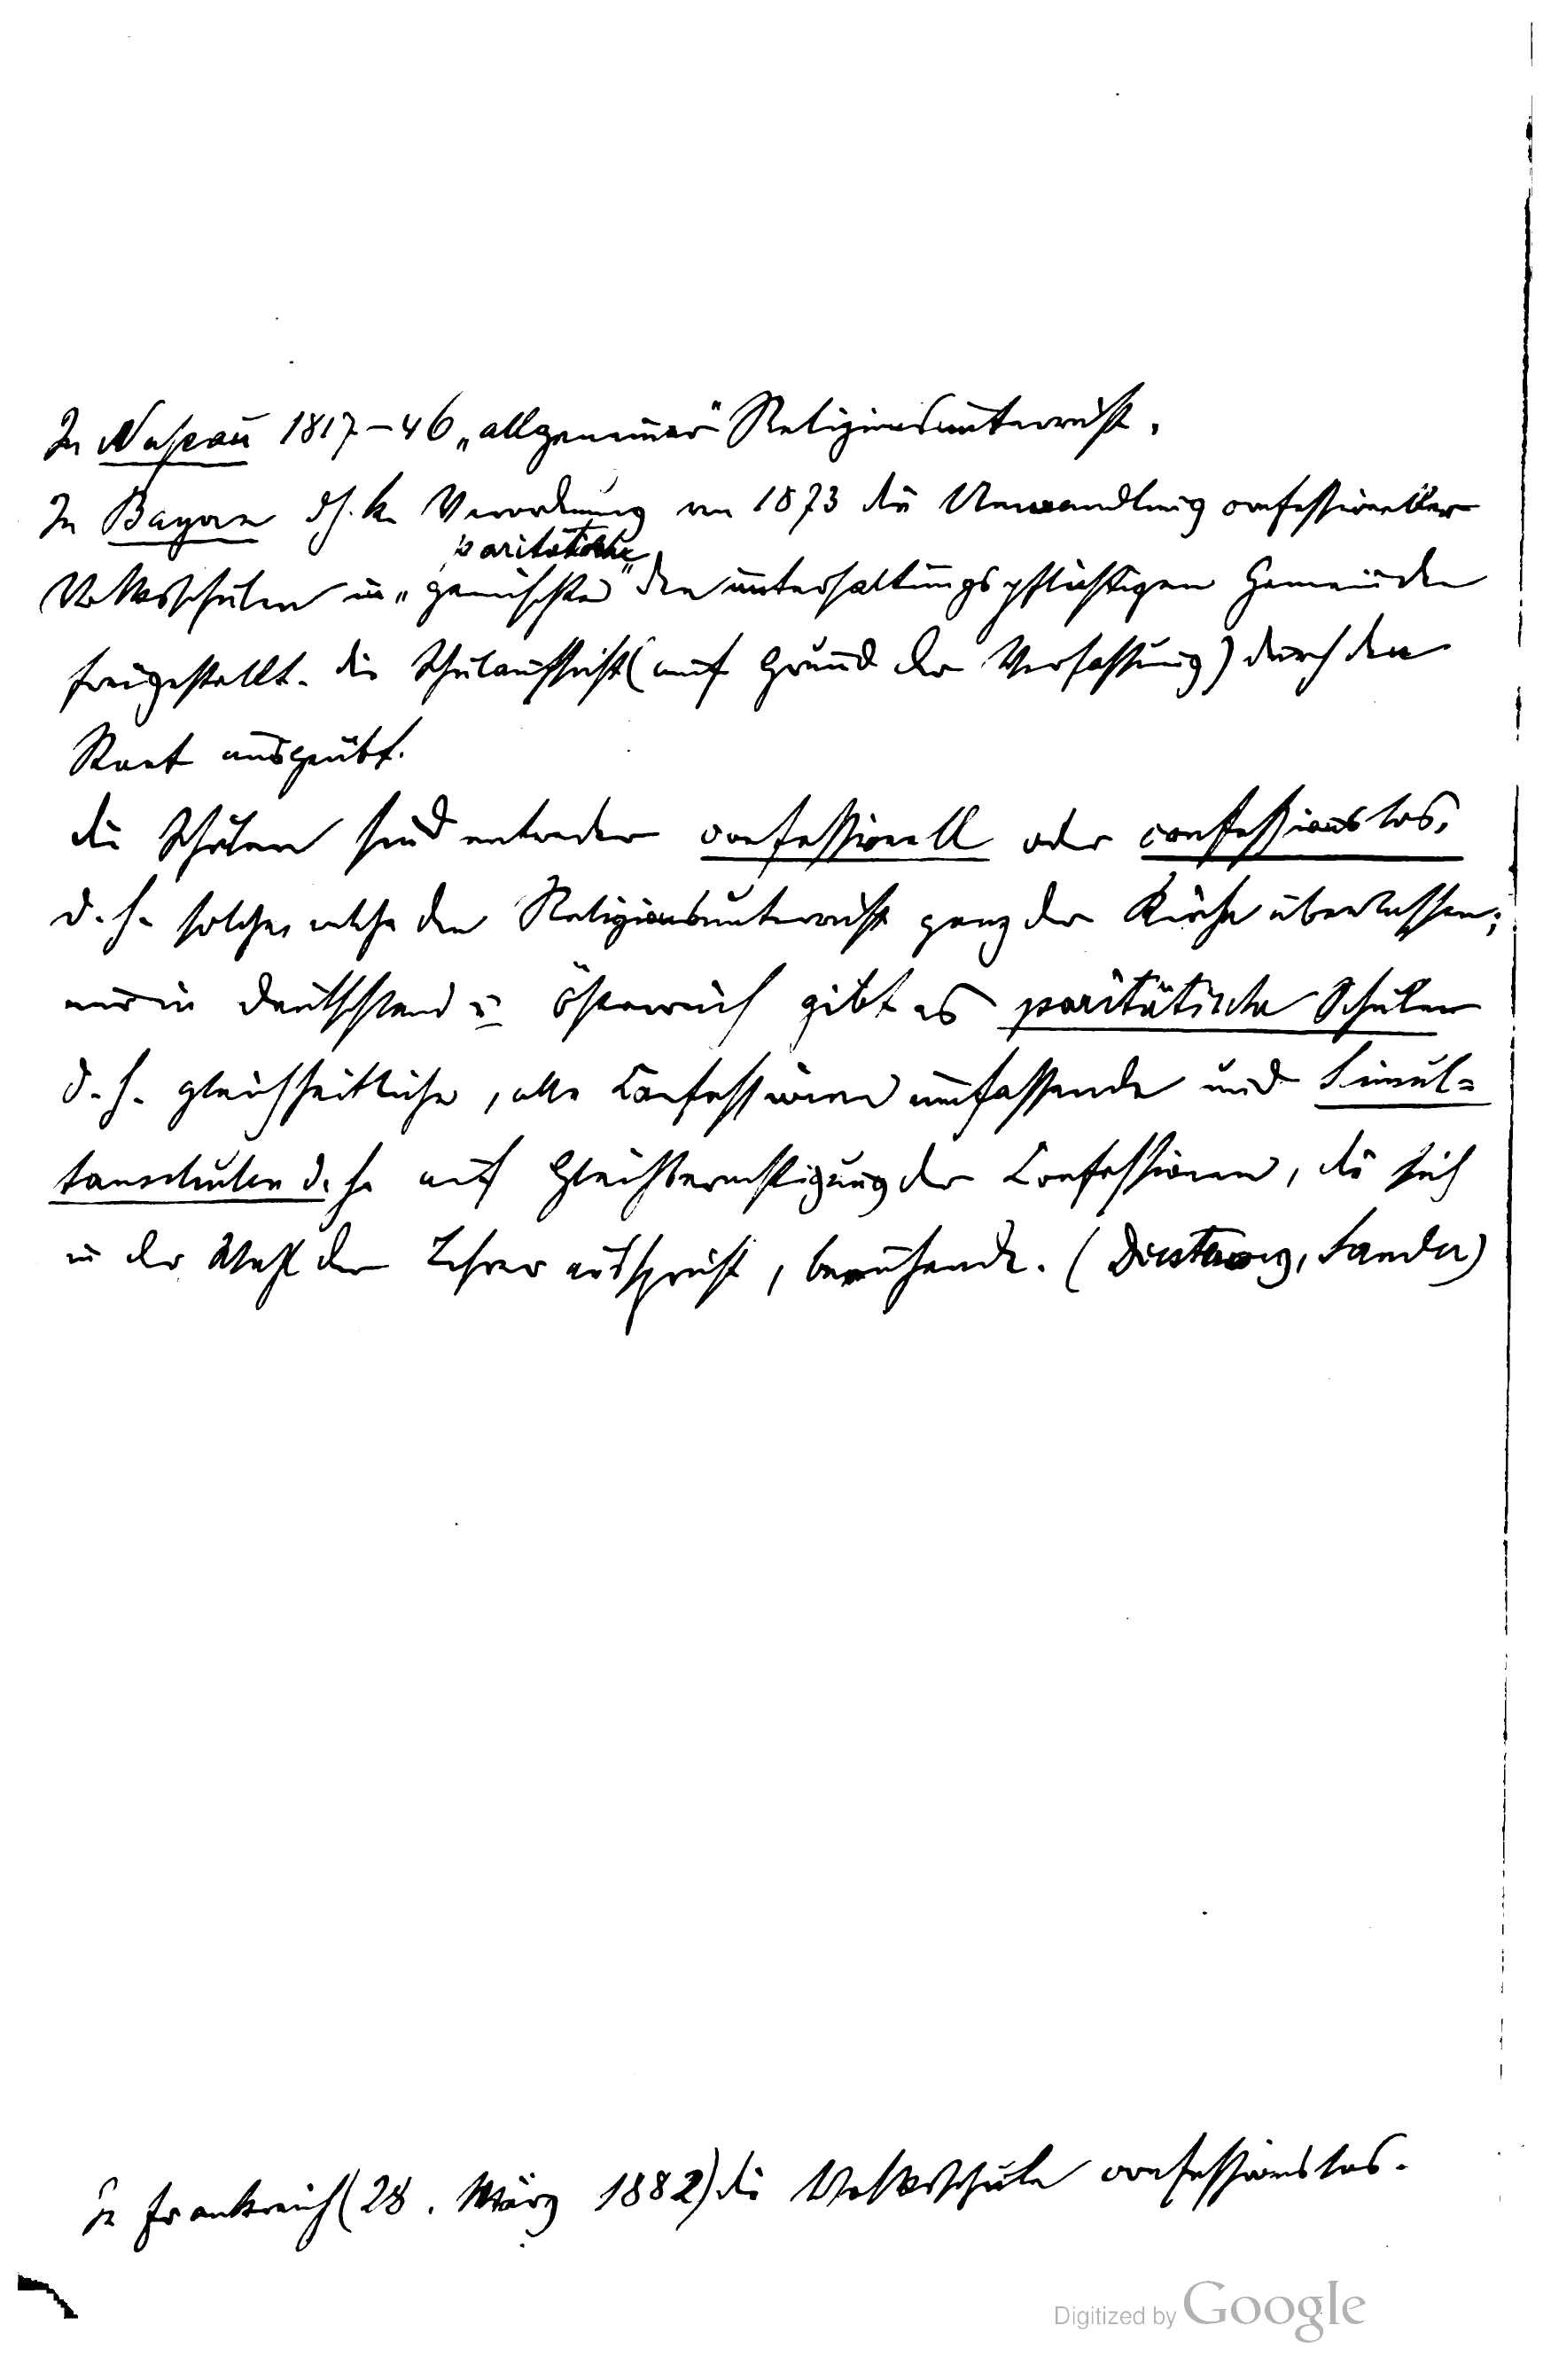 In Nassau 1817–46 „allgemeiner" Religionsunterricht.
In Bayern dch. k. Verordnung von 1873 die Umwandlung confessioneller
paritätische
Volksschulen in „gemischte" den unterhaltungspflichtigen Gemeinden
freigestellt. die Schulaufsicht (auf Grund der Verfassung) durch den
Staat ausgeübt.
die Schulen sind entweder confessionell oder confessionslos,
d. h. solche, welche den Religionsunterricht ganz der Kirche überlassen;
nur in Deutschland u. Österreich gibt es paritätische Schulen
d. h. gleichheitliche, alle Confessionen umfassende und Simul=
tanschulen d. h. auf Gleichberechtigung der Confessionen, die sich
in der Wahl der Lehrer ausspricht, beruhende. (Diesterweg, Sander)
In Frankreich (28. März 1882) die Volksschule confessionslos.
Digitized by Google